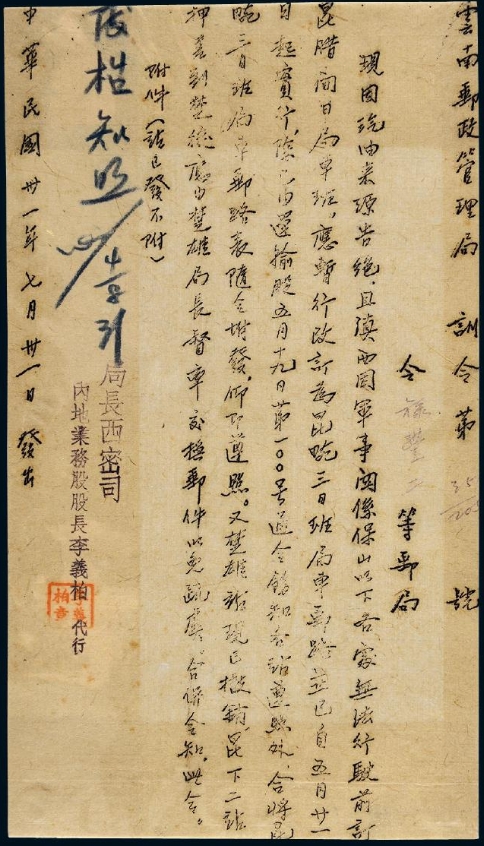 雲南郵政管理局 訓令第 號
令 祿豐二等郵局
現因汽油來源告絕，且滇西因軍事關係保山以下各處無法行駛前訂
昆腊間日局車班，應暫行改訂為昆畹三日班局車郵路並已自五月廿一
日起實行，除已由運輸股五月十九日第一〇〇号通令飭知各站遵照外，合將昆
畹三日班局車郵路表隨令附發，仰即遵照。又楚雄站現已撤銷，昆下二站
押差到楚後應由楚雄局長督率交接郵件以免疏虞。合併令知，此令。
附件（站已發不附）
局長西密司
內地業務股股長李義柏代行
中華民國卅一年七月卅一日 發出